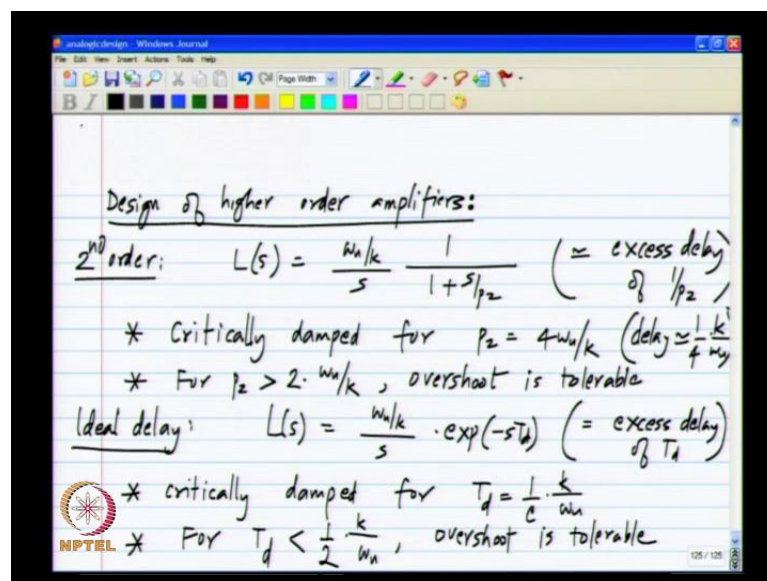 analogicdesign - Windows Journal
File Edit View Insert Actions Tools Help
Page Width
B I
Design of higher order amplifiers:
2nd order: L(s) = ωu/k / s · 1 / (1 + s/p2) (≃ excess delay of 1/p2)
* Critically damped for p2 = 4ωu/k (delay ≃ 1/4 k/ωu)
* For p2 > 2 · ωu/k, overshoot is tolerable
Ideal delay: L(s) = ωu/k / s · exp(-sTd) (= excess delay of Td)
* critically damped for Td = 1/e · k/ωu
* For Td < 1/2 · k/ωu, overshoot is tolerable
NPTEL
125 / 125